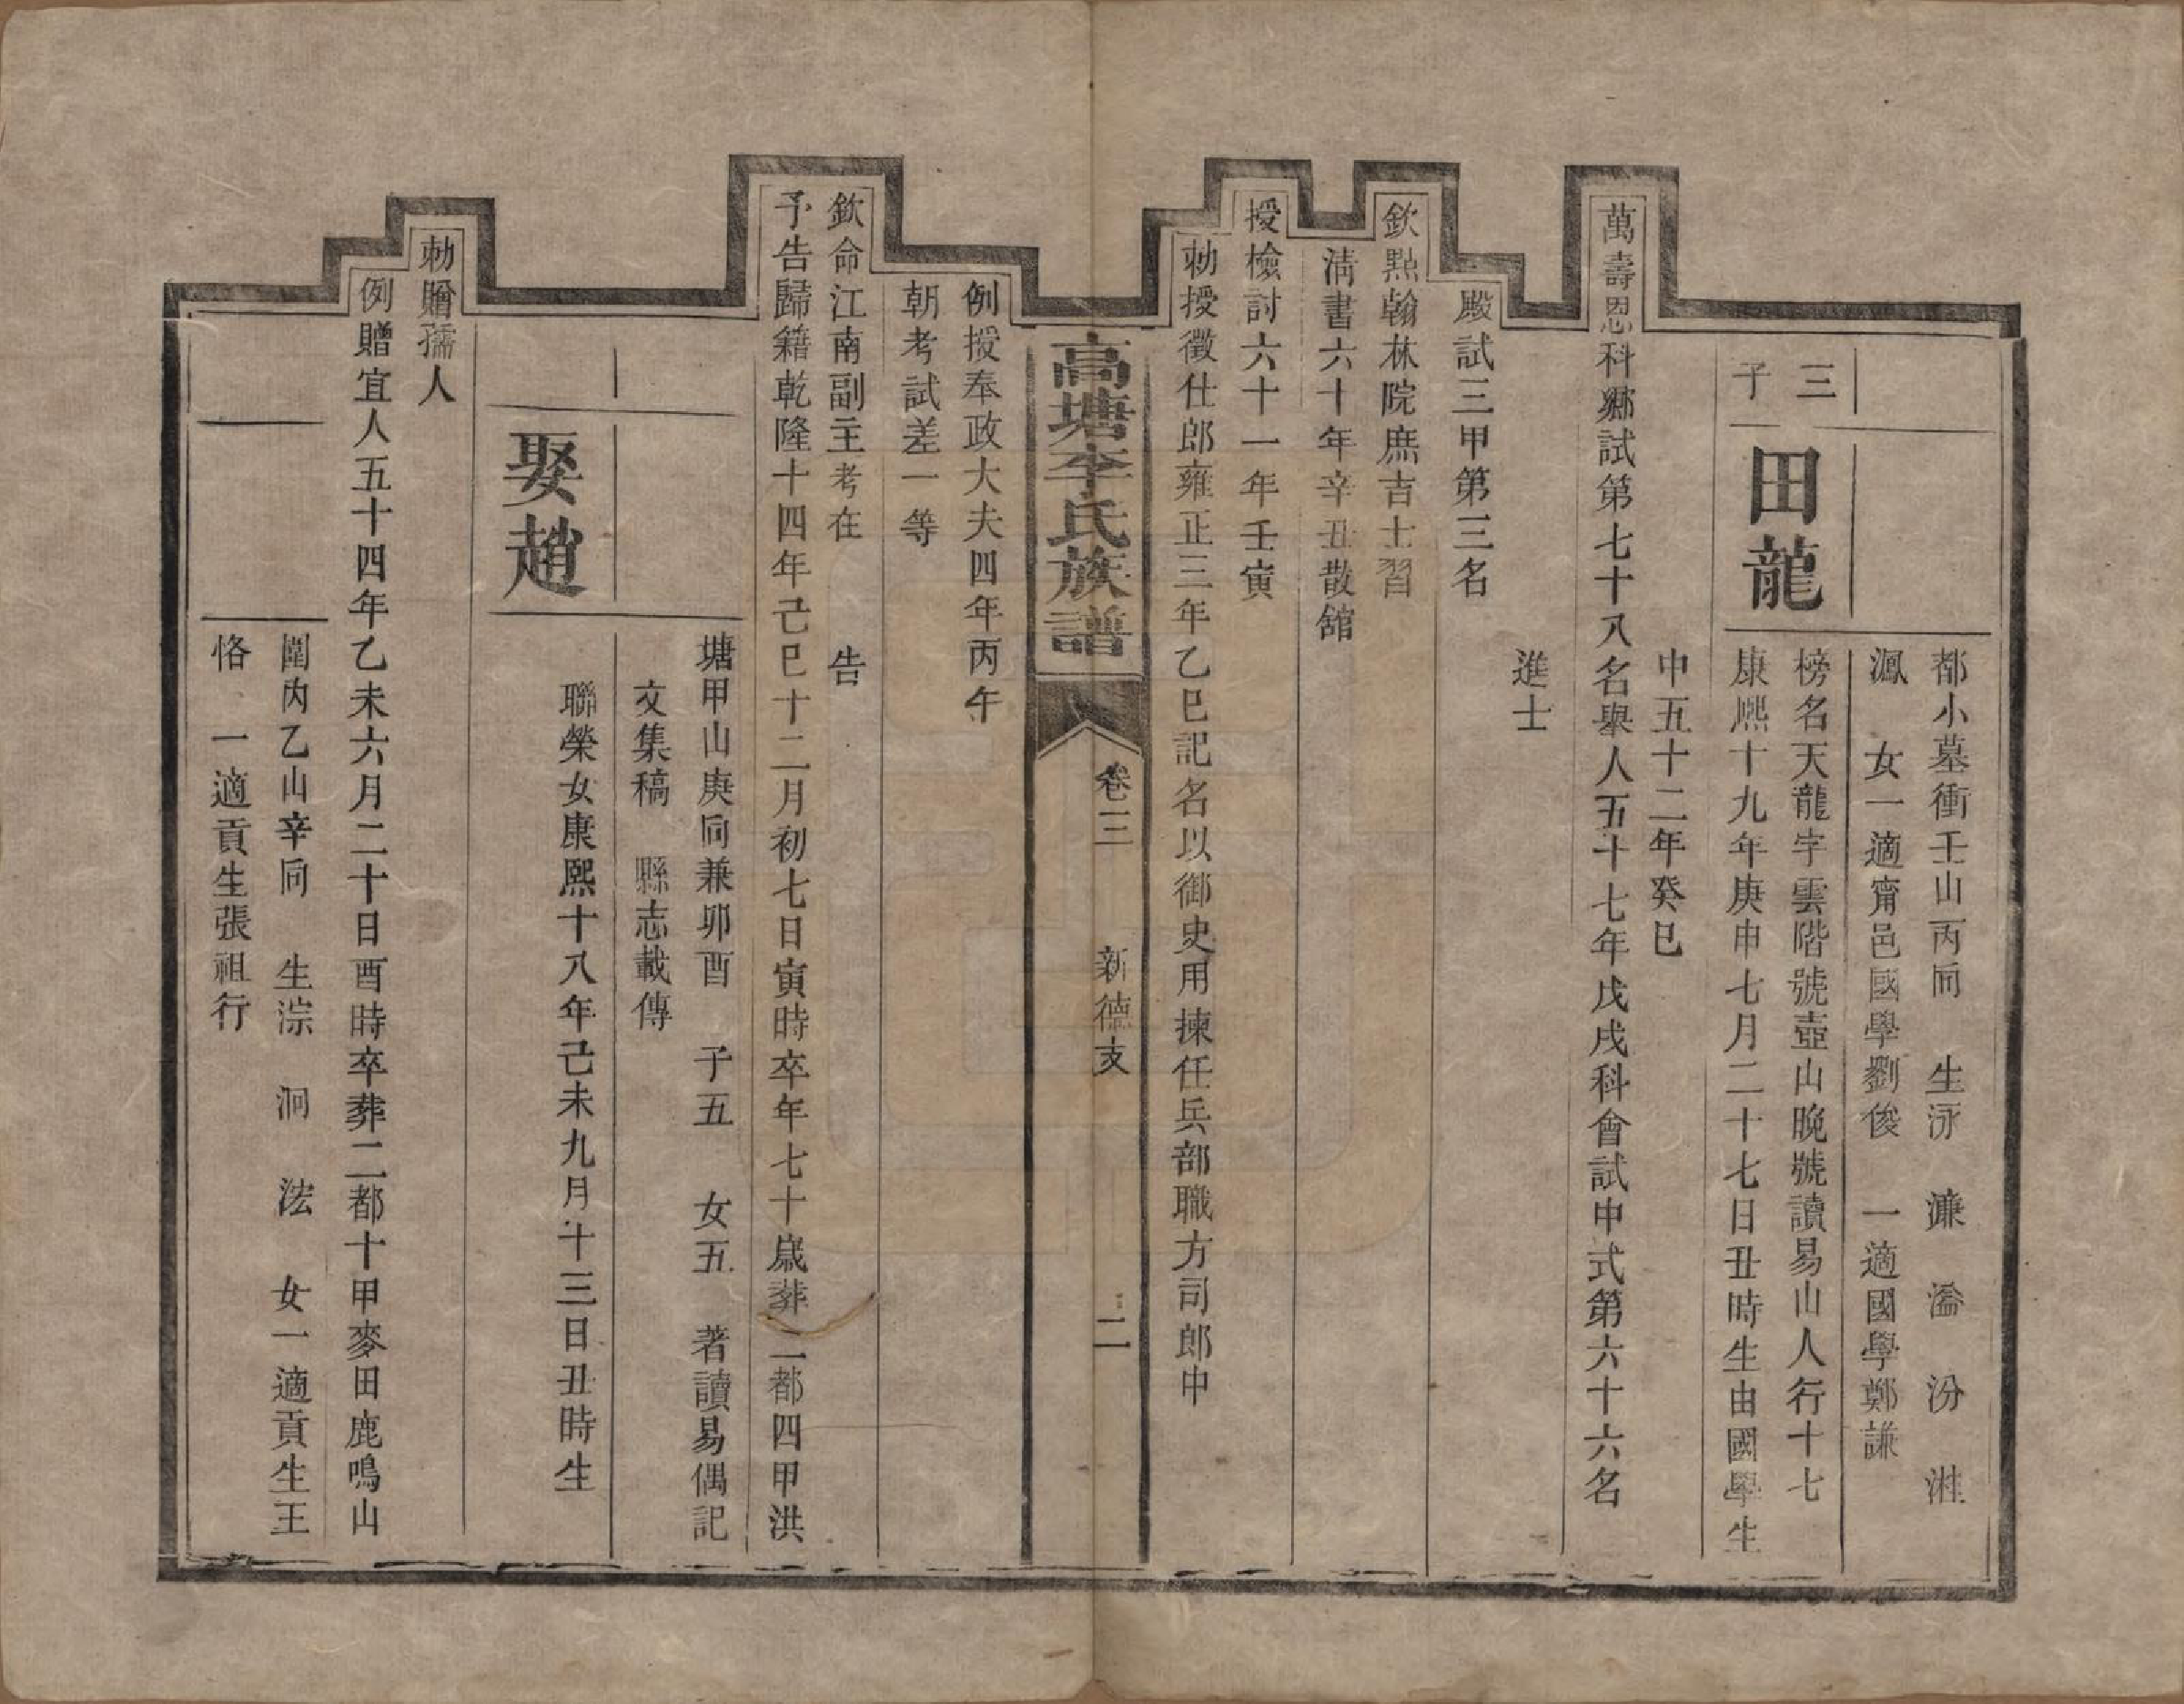 都小墓衝壬山丙向　生泳　濂　瀹　汾　湴
渢　女一適甯邑國學劉俊　一適國學鄭謙
三
子
田龍
榜名天龍字雲階號壺山晚號讀易山人行十七
康熙十九年庚申七月二十七日丑時生由國學生
中五十二年癸巳
萬壽恩科鄉試第七十八名舉人五十七年戊戌科會試中式第六十六名
進士
殿試三甲第三名
欽點翰林院庶吉士習
淸書六十年辛丑散舘
授檢討六十一年壬寅
勅授徵仕郎雍正三年乙巳記名以御史用揀任兵部職方司郎中
高塘李氏族譜
卷三
新德支
二
例授奉政大夫四年丙午
朝考試差一等
欽命江南副主考在　告
予告歸籍乾隆十四年己巳十二月初七日寅時卒年七十歲葬二都四甲洪
塘甲山庚向兼卯酉　子五　女五　著讀易偶記
文集稿　縣志載傳
娶趙
聯榮女康熙十八年己未九月十三日丑時生
勅贈孺人
例贈宜人五十四年乙未六月二十日酉時卒葬二都十甲麥田鹿鳴山
圍內乙山辛向　生淙　泂　法　女一適貢生王
恪　一適貢生張祖行